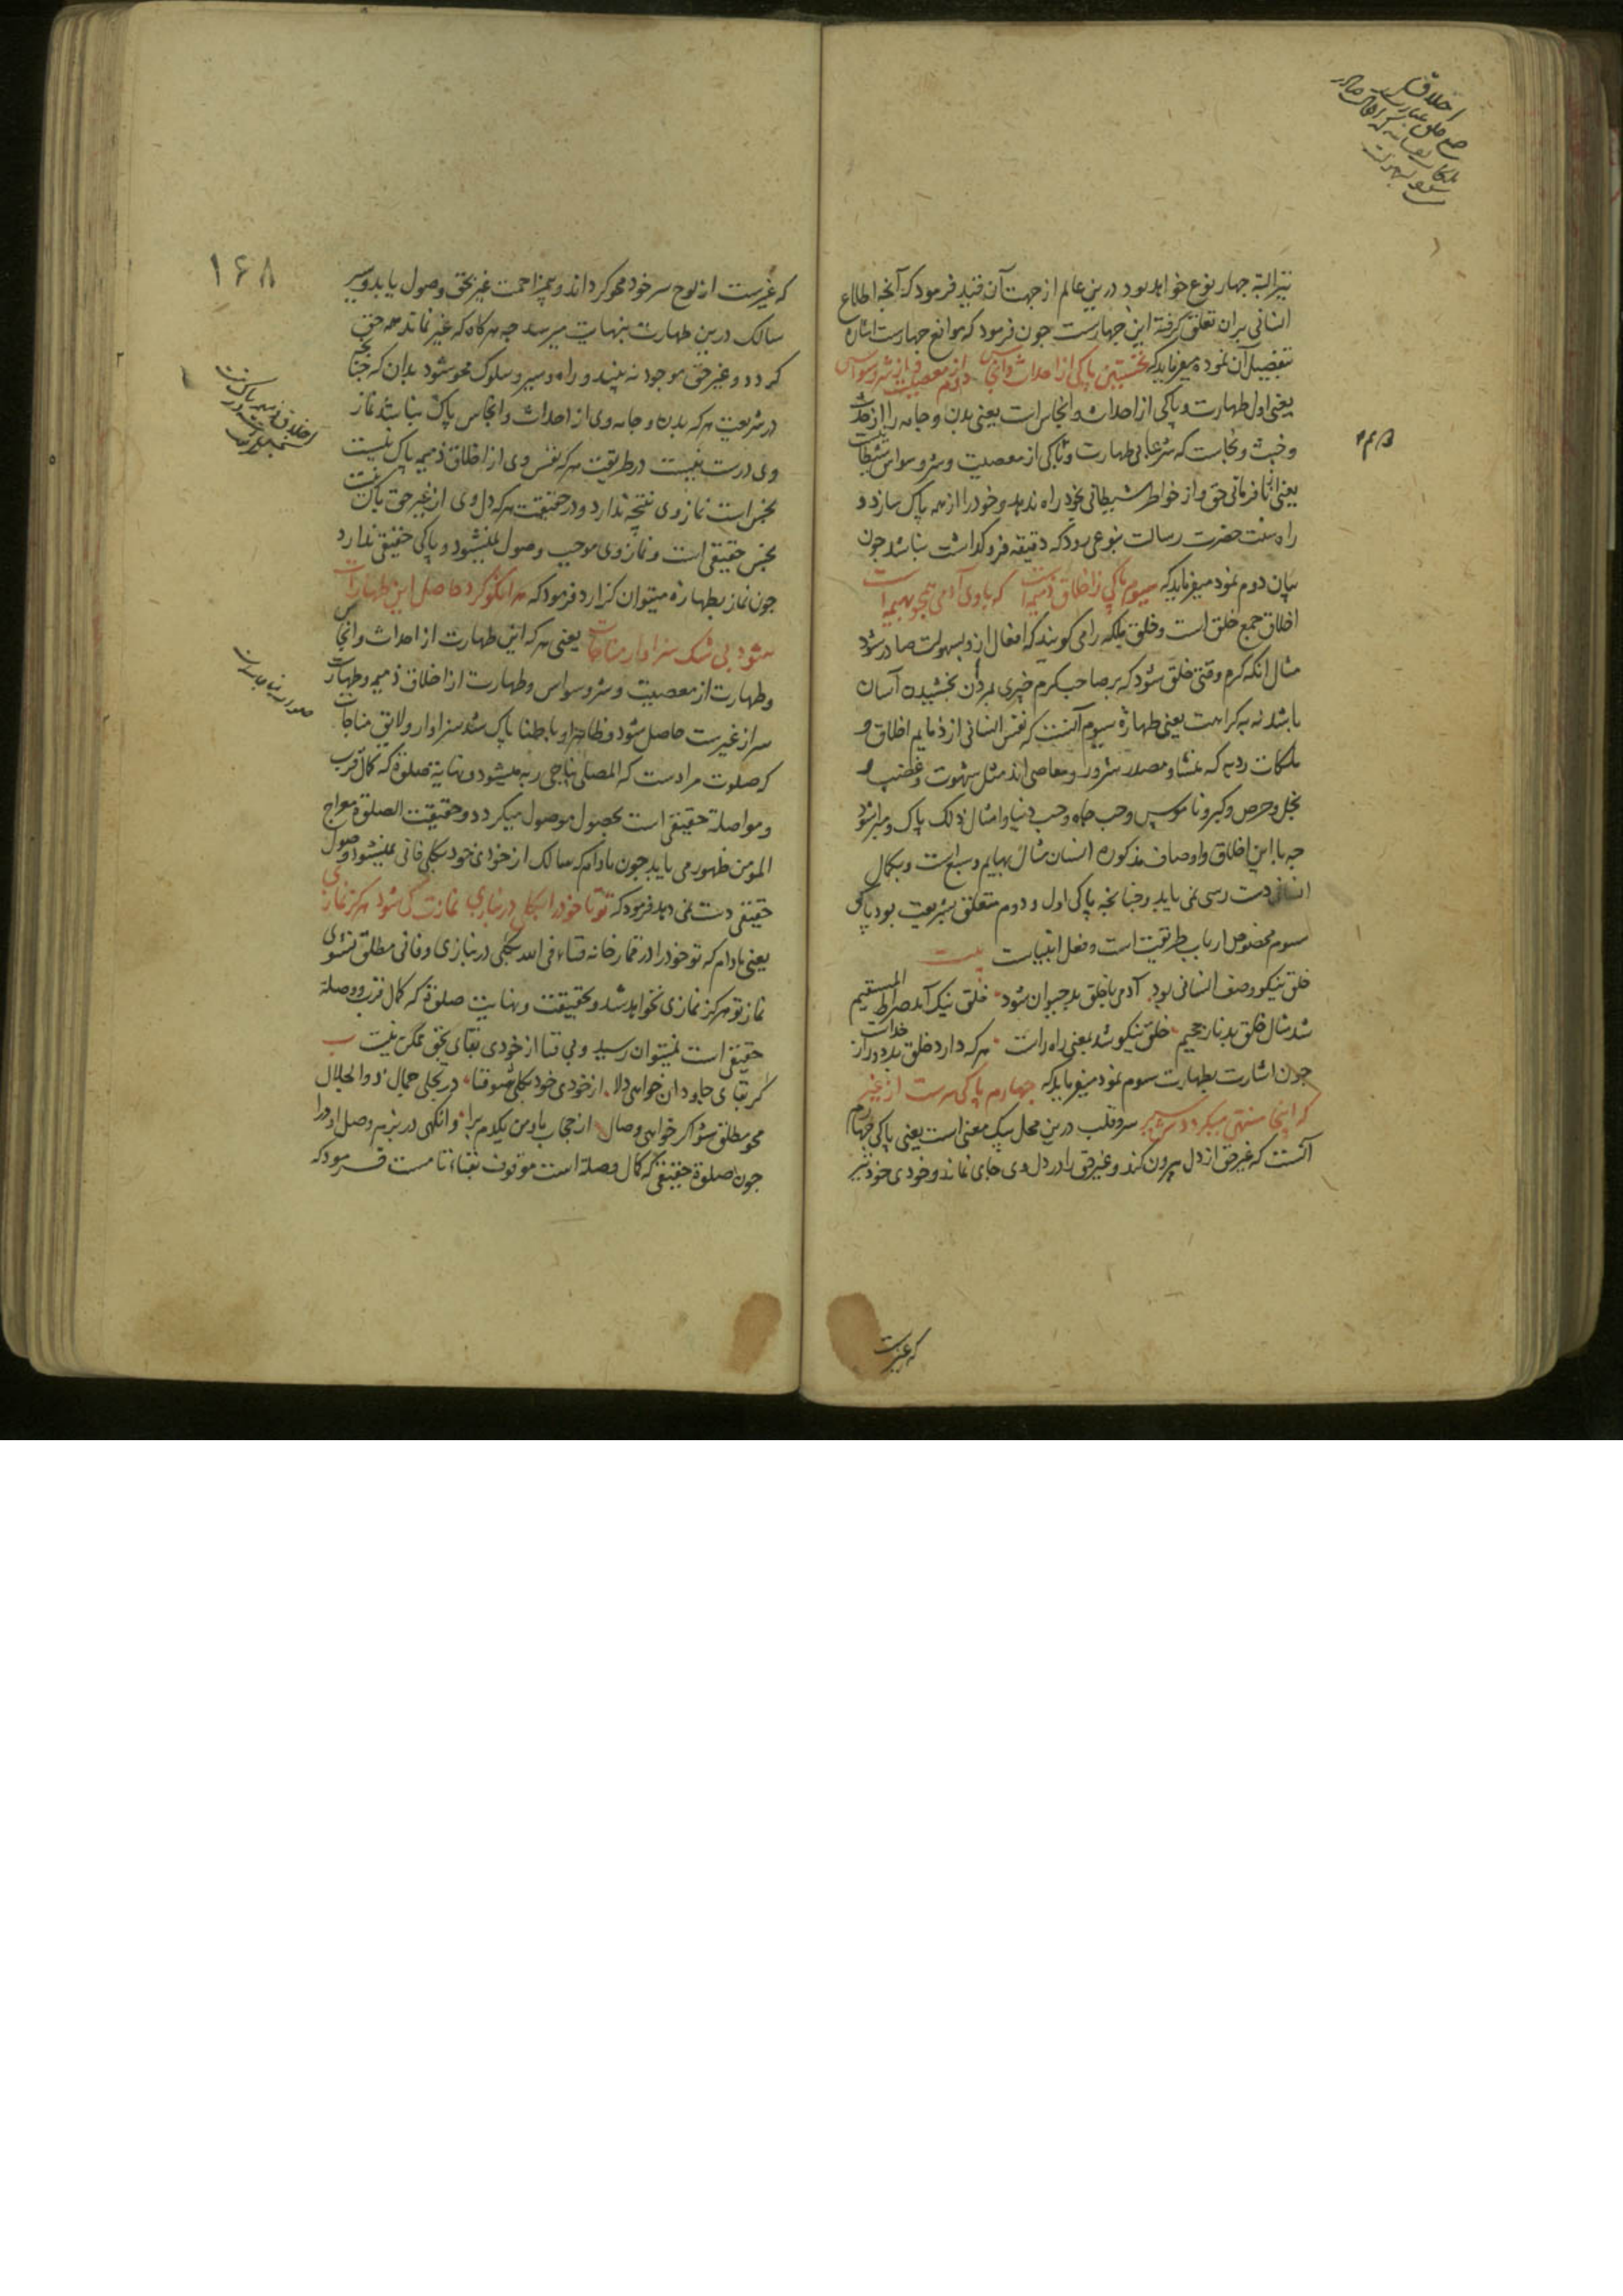 نیز البته چهار نوع خواهد بود درین عالم از جهت آن قید فرمود که آنچه اطلاع
انسانی بران تعلق گرفته این چهارست چون فرمود که موانع چهارست اشاره
بتفصیل آن نموده میفرماید که نخستین پاکی از احداث وانجاس دوم از معصیت وز شر وسواس
یعنی اول طهارت و پاکی از احداث وانجاس است یعنی بدن و جامه را از حدث
وخبث ونجاست که شرعا بی طهارت وپاکی از معصیت وشر وسواس شیطانیت
یعنی از نافرمانی حق واز خواطر شیطانی بخود راه ندهد وخود را از همه پاک سازد و
راه سنت حضرت رسالت بنوعی رود که دقیقه فروگذاشت نباشد چون
بیان دوم نمود میفرماید که سیوم پاکی ز اخلاق ذمیمه است که با وی آدمی همچو بهیمه است
اخلاق جمع خلق است وخلق ملکه را می گویند که افعال ازو بسهولت صادر شود
مثال انکه کرم وقتی خلق شود که بر صاحب کرم چیزی بمردن بخشیدن آسان
باشد نه به کراهت یعنی طهارة سیوم آنست که نفس انسانی از ذمایم اخلاق و
ملکات ردیه که منشا ومصدر شرور ومعاصی اند مثل شهوت وغضب و
بخل وحرص وکبر وناموس وحب جاه وحب دنیا وامثال ذلک پاک ومبرا شود
چه با این اخلاق واوصاف مذکوره انسان مثال بهایم وسباع است وبکمال
انسانی دست رسی نمی یابد وچنانچه پاکی اول و دوم متعلق بشریعت بود پاکی
سیوم مخصوص ارباب طریقت است وفعل انبیاست بیت
خلق نیکو وصف انسانی بود آدمی با خلق بد حیوان شود خلق نیک آمد صراط المستقیم
شد مثال خلق بد نار جحیم خلق نیکو شد بمعنی راه راست هر که دارد خلق بد دور از خداست
چون اشارت بطهارت سوم نمود میفرماید که چهارم پاکی سرست از غیر
که اینجا منتهی میگرددش سیر سر وقلب درین محل بیک معنی است یعنی پاکی چهارم
آنست که غیر حق از دل بیرون کند وغیر حق را در دل وی جای نماند وخودی خود نیز
که غیرست
۱۶۸
که غیرست از لوح سر خود محو گرداند وبی مزاحمت غیر بحق وصول یابد وسیر
سالک درین طهارت بنهایت میرسد چه هرگاه که غیر نماند همه حق
گردد وغیر حق موجود نه بیند و راه وسیر وسلوک محو شود بدان که چنانچه
در شریعت هر که بدن وجامه وی از احداث وانجاس پاک نباشد نماز
وی درست نیست در طریقت هر که نفس وی از اخلاق ذمیمه پاک نیست
نجس است نماز وی نتیجه ندارد ودر حقیقت هر که دل وی از غیر حق پاک نیست
نجس حقیقی است ونماز وی موجب وصول نمیشود وپاکی حقیقی ندارد
چون نماز بطهارة میتوان گزارد فرمود که هر انکو کرد حاصل این طهارات
شود بی شک سزاوار مناجات یعنی هر که این طهارت از احداث وانجاس
وطهارت از معصیت وشر وسواس وطهارت از اخلاق ذمیمه وطهارت
سر از غیرست حاصل شود وظاهرا وباطنا پاک شد سزاوار ولایق مناجات
که صلوت مرادست که المصلی یناجی ربه میشود ونهایة صلوة که کمال قرب
ومواصلة حقیقی است بحصول موصول میگردد وحقیقت الصلوة معراج
المؤمن ظهور می یابد چون مادام که سالک از خودی خود بکلی فانی نمیشود وصول
حقیقی دست نمی دهد فرمود که تو تا خود را بکلی در نبازی نمازت کی شود هرگز نمازی
یعنی مادام که تو خود را در قمار خانه فناء فی الله بکلی در نبازی وفانی مطلق نشوی
نماز تو هرگز نمازی نخواهد شد وبحقیقت ونهایت صلوة که کمال قرب ووصلة
حقیقی است نمیتوان رسید وبی فنا از خودی بقای بحق ممکن نیست
گر بقای جاودان خواهی دلا از خودی خود بکلی شو فنا در تجلی جمال ذو الجلال
محو مطلق شو اگر خواهی وصال از حجاب ما ومن یکدم برا وانگهی در بزم وصل او درا
چون صلوة حقیقی که کمال وصلة است موقوف بفناء تامست فرمود که